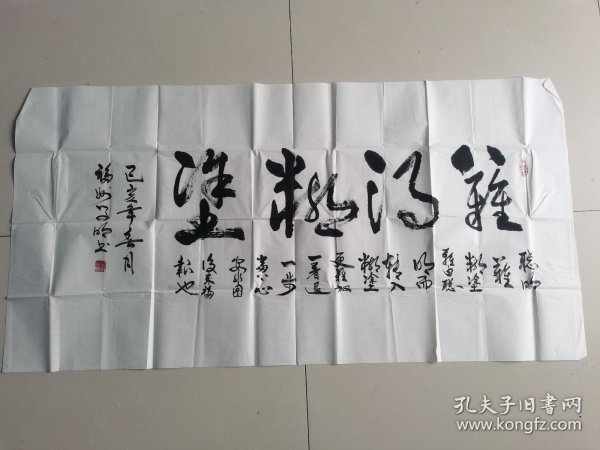 難得糊塗
聰明
難
糊塗
難由聰
明而
轉入
糊塗
更難放
一着退
一步
當下心
安非圖
後來福
報也
己亥年春月
福州
书
孔夫子旧书网
www.kongfz.com